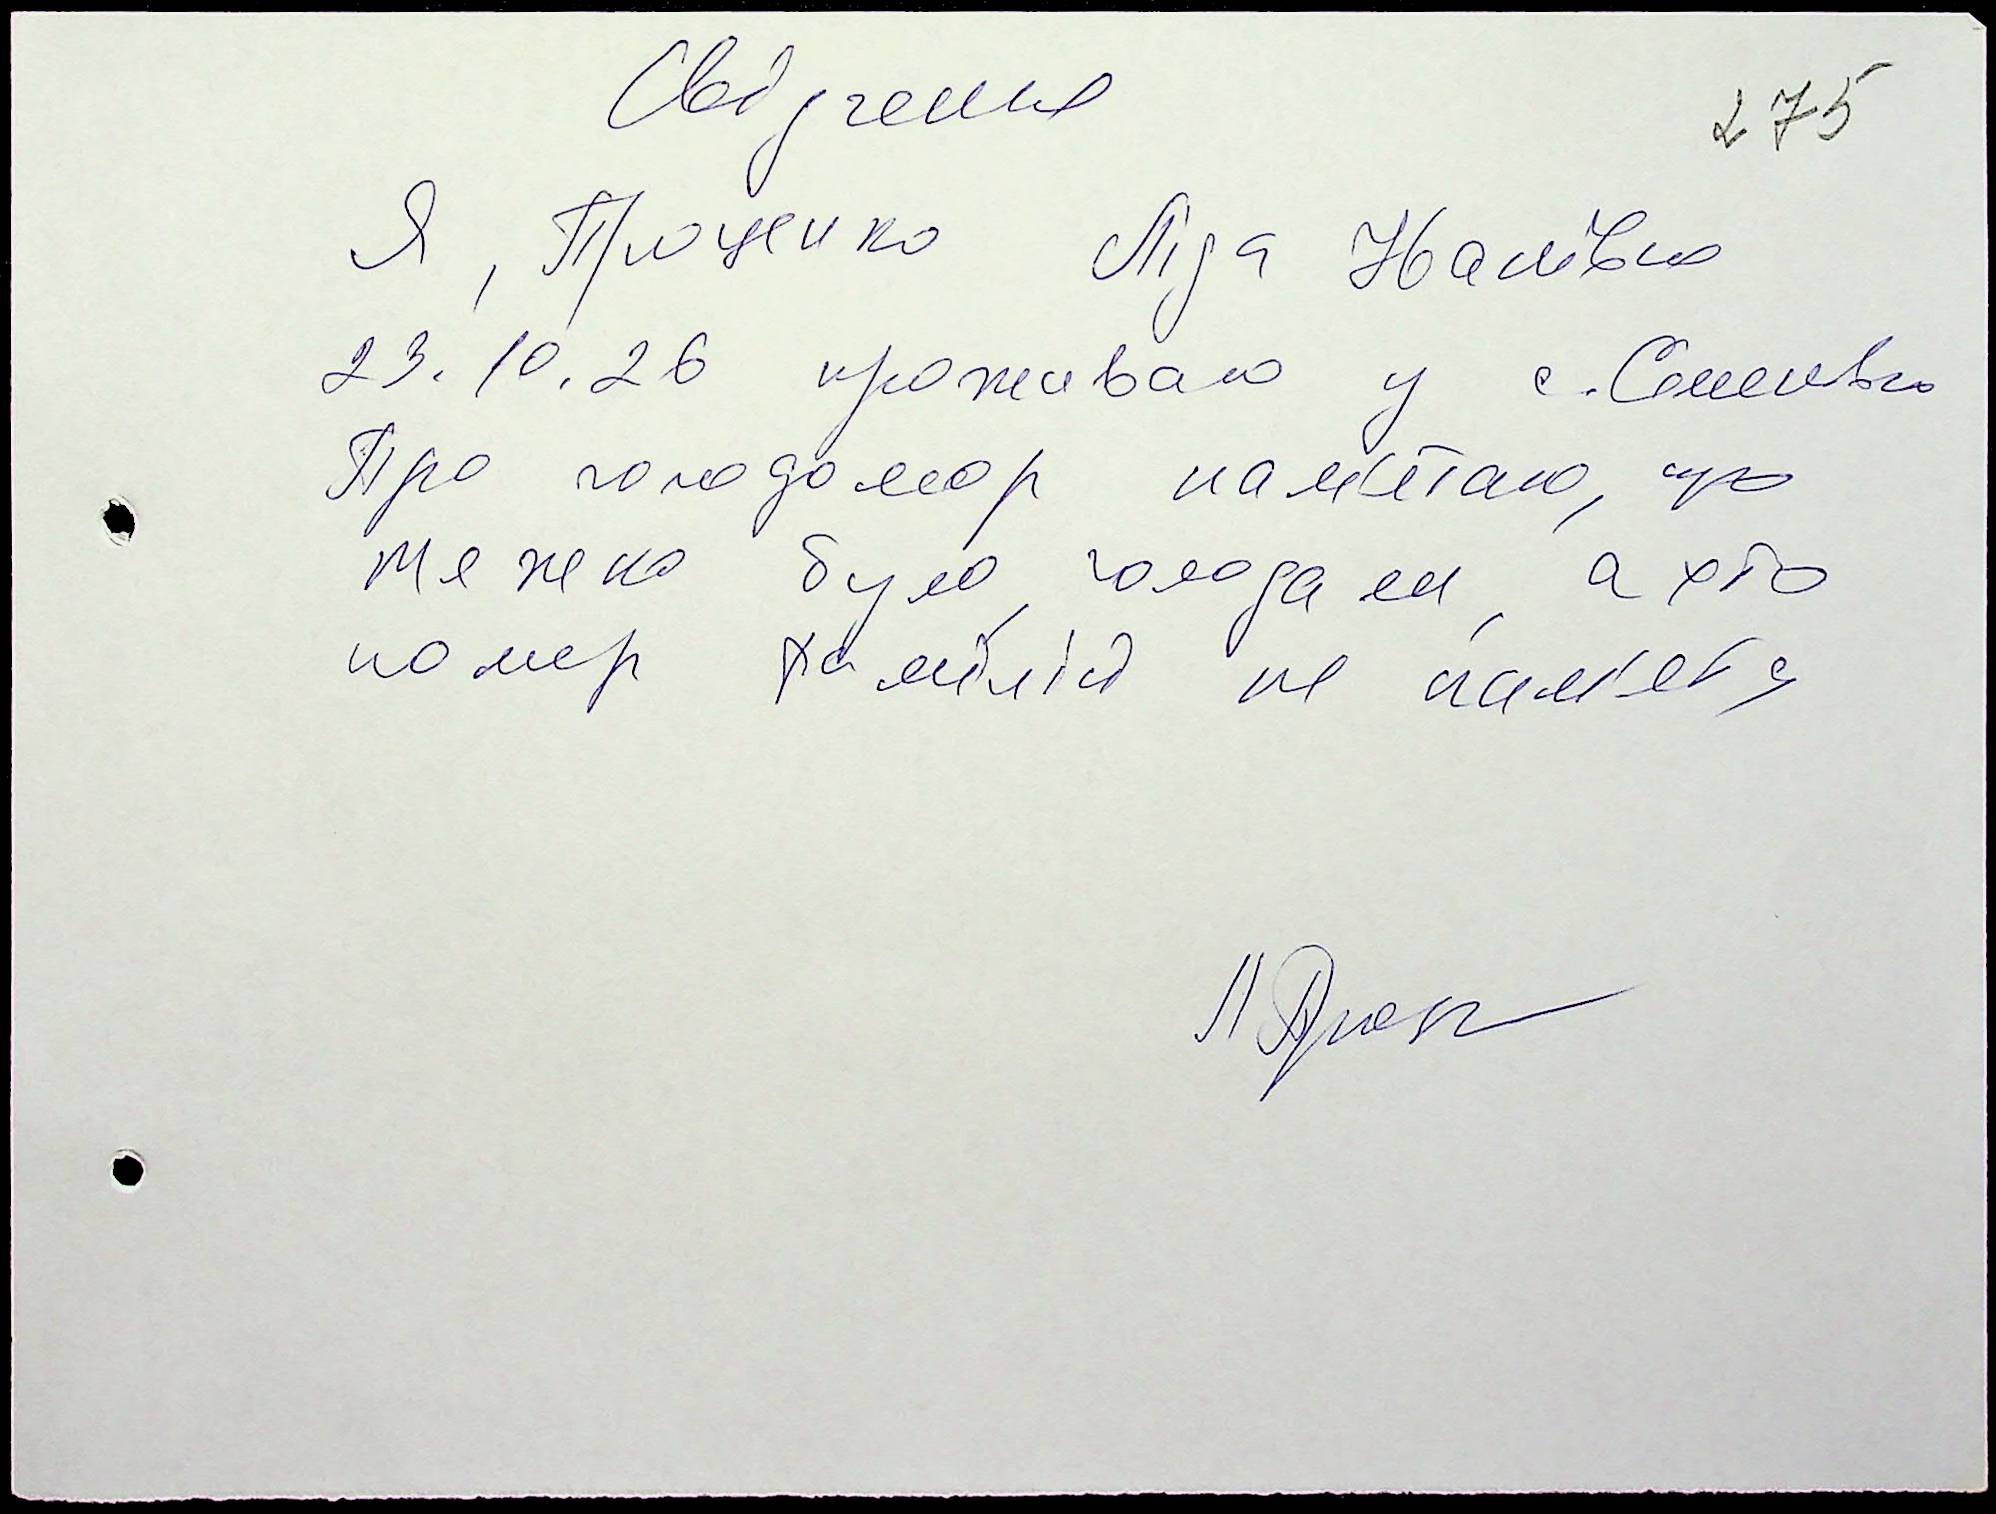 Свідчення
275
Я, Проценко Ліда Іванівна
23.10.26 проживаю у с.
Про голодомор пам'ятаю, що
тяжко було, голодали, а хто
помер фамілій не пам'ята
Л Проц